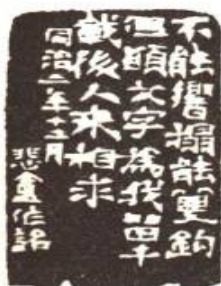 不能響搨能雙鉤
但願文字為我留千
載後人來相求
同治二年十二月
悲盦作銘